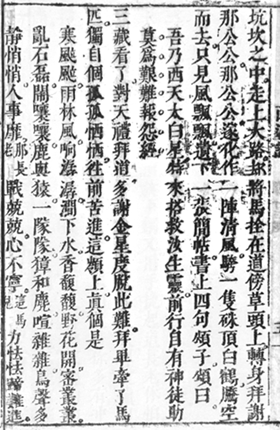 坑坎之中走上大路却將馬拴在道傍草頭上轉身拜謝
那公公那公公遂化作一陣清風跨一隻硃頂白鶴騰空
而去只見風飄飄遺下一張簡帖書上四句頌子頌曰
吾乃西天太白星特來搭救汝生靈前行自有神徒助
莫爲艱難報怨經
三藏看了對天禮拜道多謝金星度脫此難拜畢牽了馬
匹獨自個孤孤恓恓往前苦進這嶺上眞個是
寒颼颼雨林風響潺潺澗下水香馥馥野花開密叢叢
亂石磊鬧嚷嚷鹿與猿一隊隊獐和麂喧雜雜鳥聲多
靜悄悄人事靡那長老戰兢兢心不寧這馬兒力怯怯蹄難舉